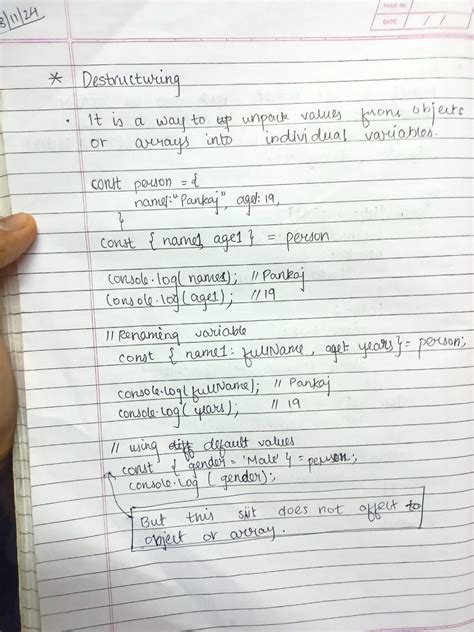 8/11/24
PAGE NO.
DATE / /
* Destructuring
• It is a way to up unpack values from objects
or arrays into individual variables.
const person = {
name1: "Pankaj", age1: 19,
}
const { name1, age1 } = person
console.log( name1); // Pankaj
console.log( age1); // 19
// Renaming variable
const { name1: fullName, age1: years} = person;
console.log( fullName); // Pankaj
console.log( years); // 19
// using diff default values
const { gender = 'Male' } = person;
console.log ( gender);
But this does not affect to
object or array.